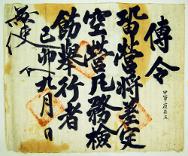 傳令
留營將差定
空營凡務檢
飭擧行者
己卯九月 日